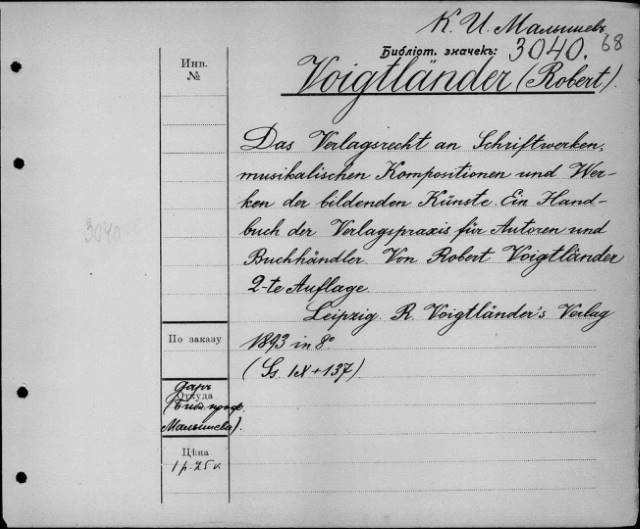 К. И. Малышевъ
68
Библіот. значекъ: 3040.
Инв.
№
Voigtländer (Robert).
Das Verlagsrecht an Schriftwerken,
musikalischen Kompositionen und Wer-
ken der bildenden Künste. Ein Hand-
buch der Verlagspraxis für Autoren und
3040
Buchhändler. Von Robert Voigtländer
2-te Auflage.
Leipzig. R. Voigtländer's Verlag
По заказу
1893 in 8°
(Ss. IX+137).
Даръ
Откуда
(Библ. проф.
Малышева).
Цѣна
1 р. 25 к.